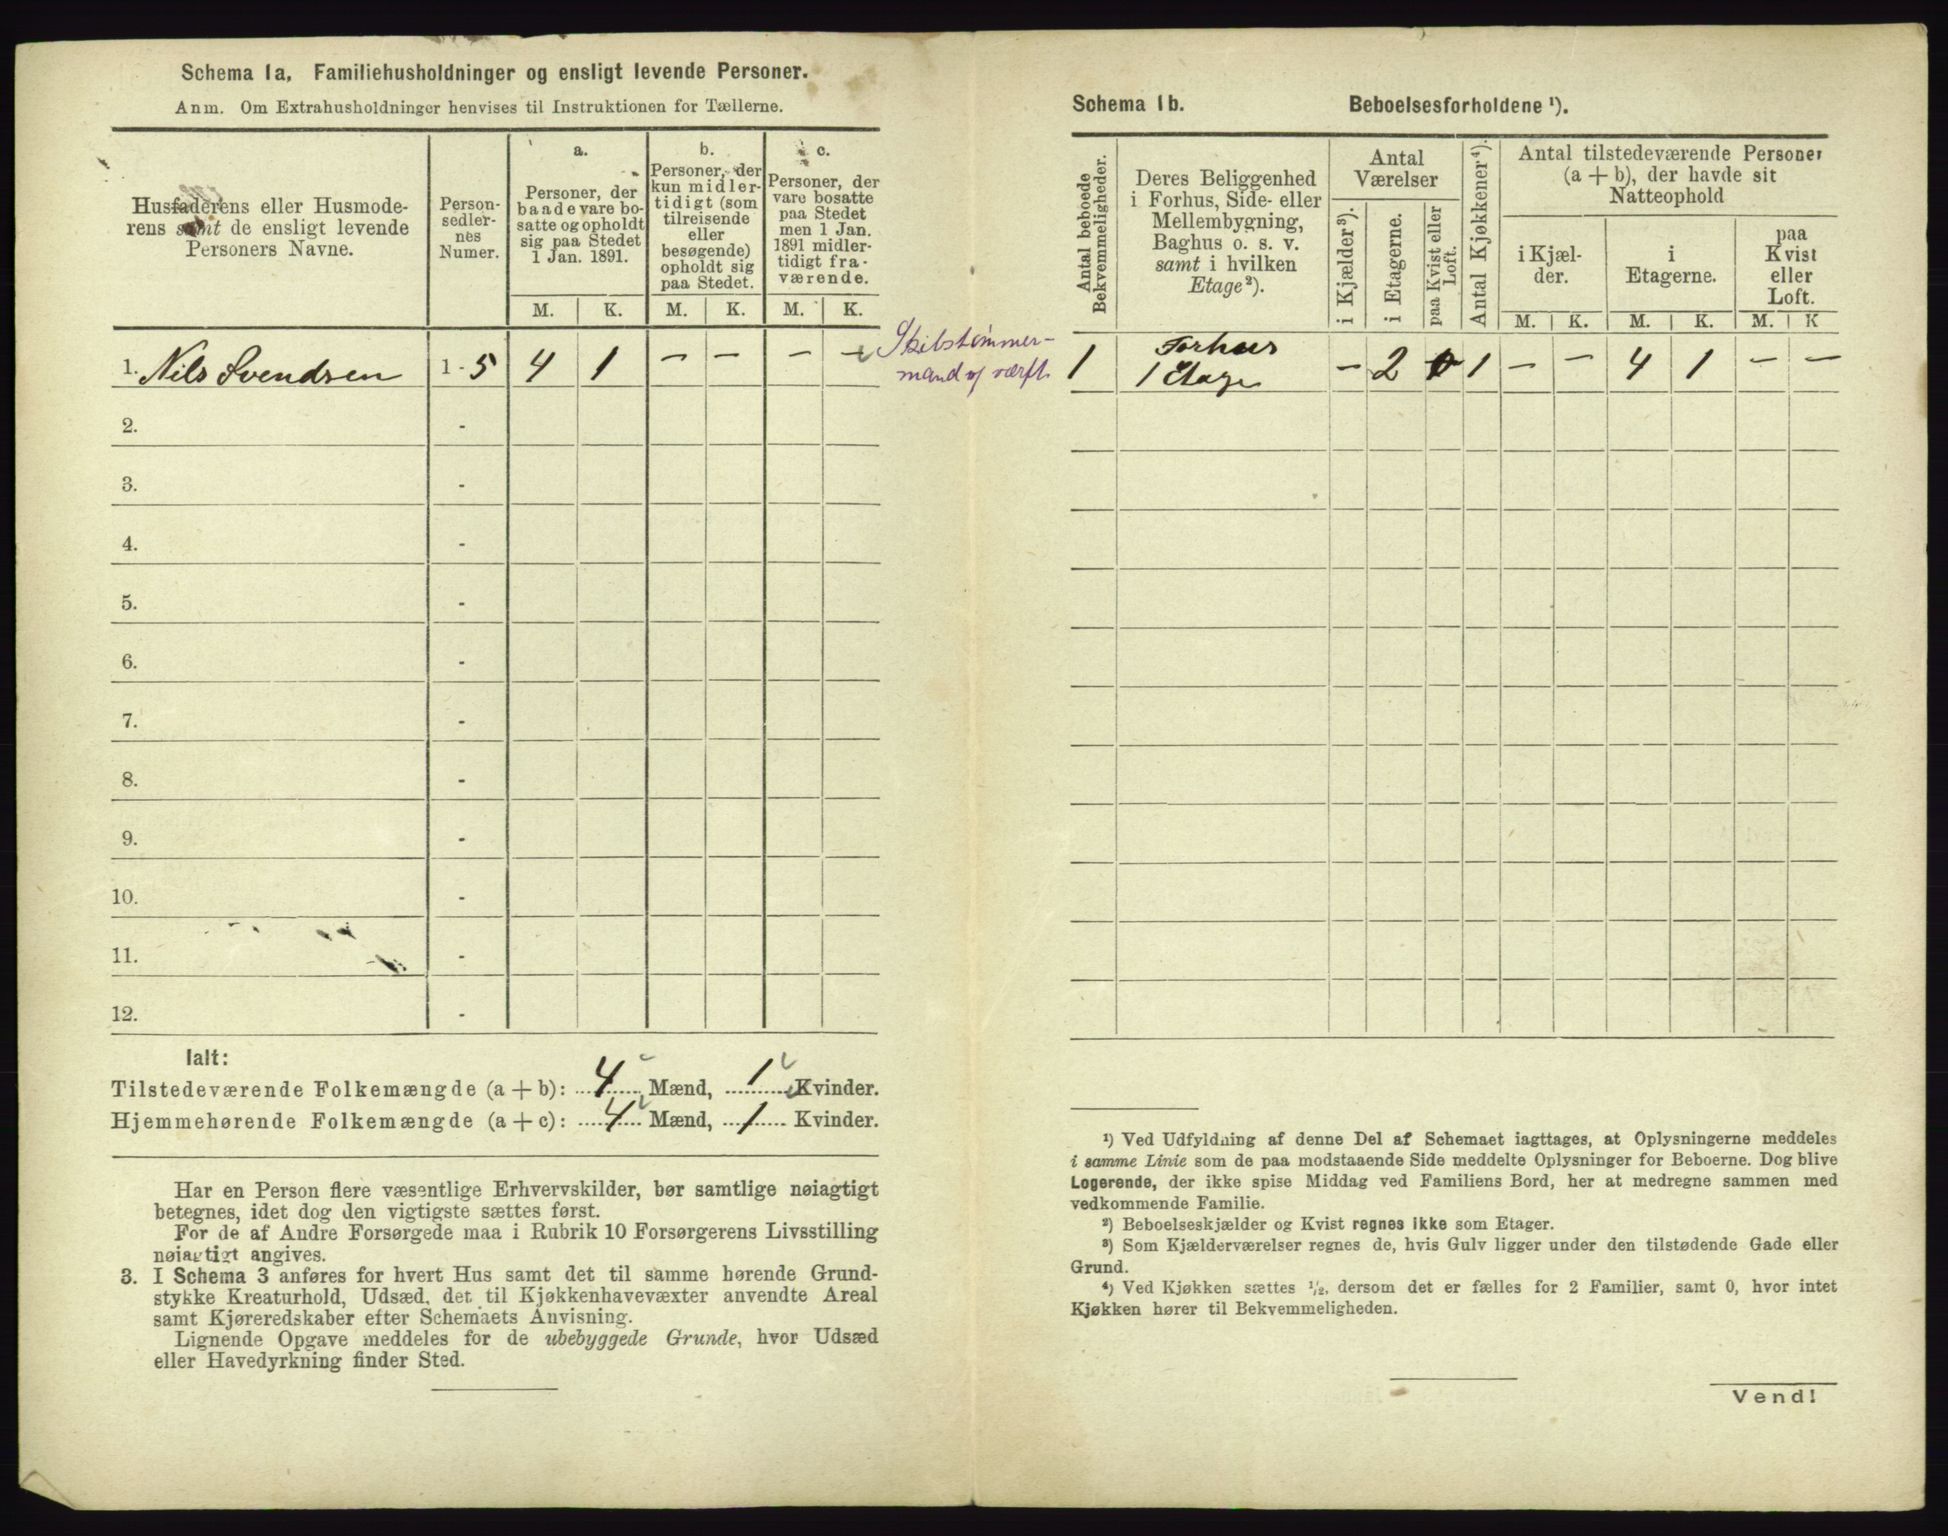 Schema 1a, Familiehusholdninger og ensligt levende Personer.
Anm. Om Extrahusholdninger henvises til Instruktionen for Tællerne.
Husfaderens eller Husmode-
rens samt de ensligt levende
Personers Navne.
Person-
sedler-
nes
Numer.
a.
Personer, der
baade vare bo-
satte og opholdt
sig paa Stedet
1 Jan. 1891.
b.
Personer, der
kun midler-
tidigt (som
tilreisende
eller
besøgende)
opholdt sig
paa Stedet.
c.
Personer, der
vare bosatte
paa Stedet
men 1 Jan.
1891 midler-
tidigt fra-
værende.
M. K. M. K. M. K.
1. Nils Svendsen 1 - 5 4 1 — — — —
Skibstømmer-
mand v/ værft.
2. -
3. -
4. -
5. -
6. -
7. -
8. -
9. -
10. -
11. -
12. -
Ialt:
Tilstedeværende Folkemængde (a + b): 4 Mænd, 1 Kvinder.
Hjemmehørende Folkemængde (a + c): 4 Mænd, 1 Kvinder.
Har en Person flere væsentlige Erhvervskilder, bør samtlige nøiagtigt
betegnes, idet dog den vigtigste sættes først.
For de af Andre Forsørgede maa i Rubrik 10 Forsørgerens Livsstilling
nøiagtigt angives.
3. I Schema 3 anføres for hvert Hus samt det til samme hørende Grund-
stykke Kreaturhold, Udsæd, det til Kjøkkenhavevæxter anvendte Areal
samt Kjøreredskaber efter Schemaets Anvisning.
Lignende Opgave meddeles for de ubebyggede Grunde, hvor Udsæd
eller Havedyrkning finder Sted.
Schema 1b. Beboelsesforholdene ¹).
Antal beboede
Bekvemmeligheder.
Deres Beliggenhed
i Forhus, Side- eller
Mellembygning,
Baghus o. s. v.
samt i hvilken
Etage²).
Antal
Værelser
i Kjælder³).
i Etagerne.
paa Kvist eller
Loft.
Antal Kjøkkener⁴).
Antal tilstedeværende Personer
(a + b), der havde sit
Natteophold
i Kjæl-
der.
i
Etagerne.
paa
Kvist
eller
Loft.
M. K. M. K. M. K
1 Forhus
1 Etage — 2 1 — — 4 1 — —
¹) Ved Udfyldning af denne Del af Schemaet iagttages, at Oplysningerne meddeles
i samme Linie som de paa modstaaende Side meddelte Oplysninger for Beboerne. Dog blive
Logerende, der ikke spise Middag ved Familiens Bord, her at medregne sammen med
vedkommende Familie.
²) Beboelseskjælder og Kvist regnes ikke som Etager.
³) Som Kjælderværelser regnes de, hvis Gulv ligger under den tilstødende Gade eller
Grund.
⁴) Ved Kjøkken sættes ¹/₂, dersom det er fælles for 2 Familier, samt 0, hvor intet
Kjøkken hører til Bekvemmeligheden.
Vend!